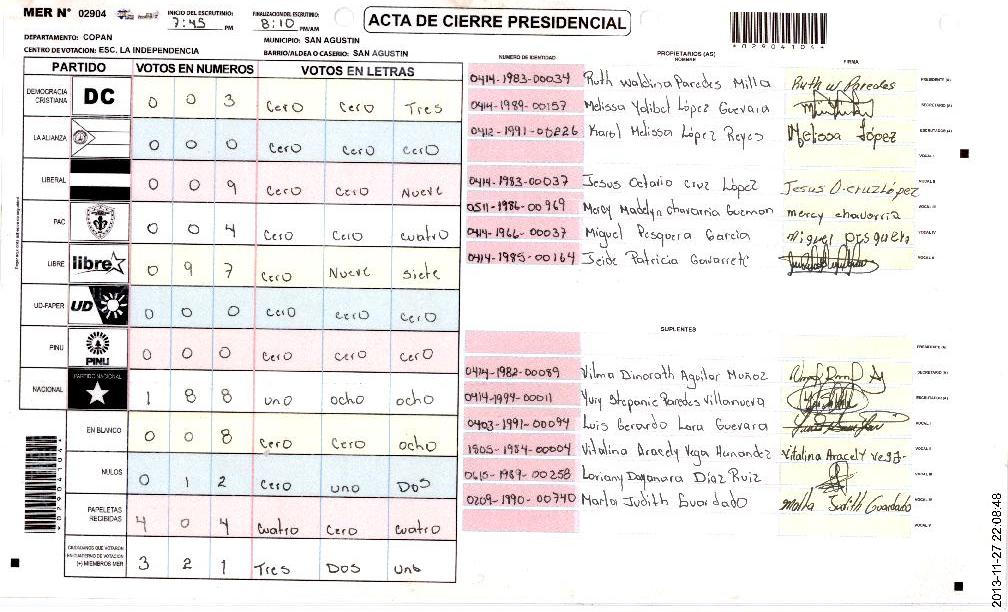 MER N° 02904
INICIO DEL ESCRUTINIO: 7:45 PM
FINALIZACION DEL ESCRUTINIO: 8:10 PM/AM
ACTA DE CIERRE PRESIDENCIAL
*02904104*
DEPARTAMENTO: COPAN
MUNICIPIO: SAN AGUSTIN
CENTRO DE VOTACION: ESC. LA INDEPENDENCIA
BARRIO/ALDEA O CASERIO: SAN AGUSTIN
PARTIDO VOTOS EN NUMEROS VOTOS EN LETRAS
DEMOCRACIA CRISTIANA DC 0 0 3 cero cero Tres
LA ALIANZA 0 0 0 cero cero cero
LIBERAL 0 0 9 cero cero Nueve
PAC 0 0 4 cero cero cuatro
LIBRE libre 0 9 7 cero Nueve siete
UD-FAPER UD 0 0 0 cero cero cero
PINU PINU 0 0 0 cero cero cero
NACIONAL PARTIDO NACIONAL 1 8 8 uno ocho ocho
EN BLANCO 0 0 8 cero cero ocho
NULOS 0 1 2 cero uno Dos
PAPELETAS RECIBIDAS 4 0 4 cuatro cero cuatro
CIUDADANOS QUE VOTARON EN CUADERNO DE VOTACION (+) MIEMBROS MER 3 2 1 Tres Dos uno
*02904104*
NUMERO DE IDENTIDAD PROPIETARIOS (AS) NOMBRE FIRMA
0414-1983-00034 Ruth Waldina Paredes Milla Ruth w Paredes PRESIDENTE (A)
0414-1989-00157 Melissa Yolibet López Guevara SECRETARIO (A)
0412-1991-00226 Karol Melissa López Reyes Melissa López ESCRUTADOR (A)
VOCAL I
0414-1983-00037 Jesus Octavio Cruz López Jesus O. cruz López VOCAL II
0511-1986-00969 Mercy Madelyn Chavarria Guzman mercy chavarria VOCAL III
0414-1966-00037 Miguel Pesquera Garcia miguel pesquera VOCAL IV
0414-1985-00164 Jeide Patricia Gavarrete VOCAL V
SUPLENTES
PRESIDENTE (A)
0414-1982-00089 Vilma Dinorath Aguilar Muñoz SECRETARIO (A)
0414-1994-00011 Yury Stepanie Paredes Villanueva ESCRUTADOR (A)
0403-1991-00094 Luis Gerardo Lara Guevara VOCAL I
1805-1984-00004 Vitalina Aracely Vega Hernandez Vitalina Aracely vega VOCAL II
0615-1989-00258 Loriany Dayanara Díaz Ruiz VOCAL III
0209-1990-00740 Marta Judith Guardado Marta Judith Guardado VOCAL IV
VOCAL V
2013-11-27 22:08:48